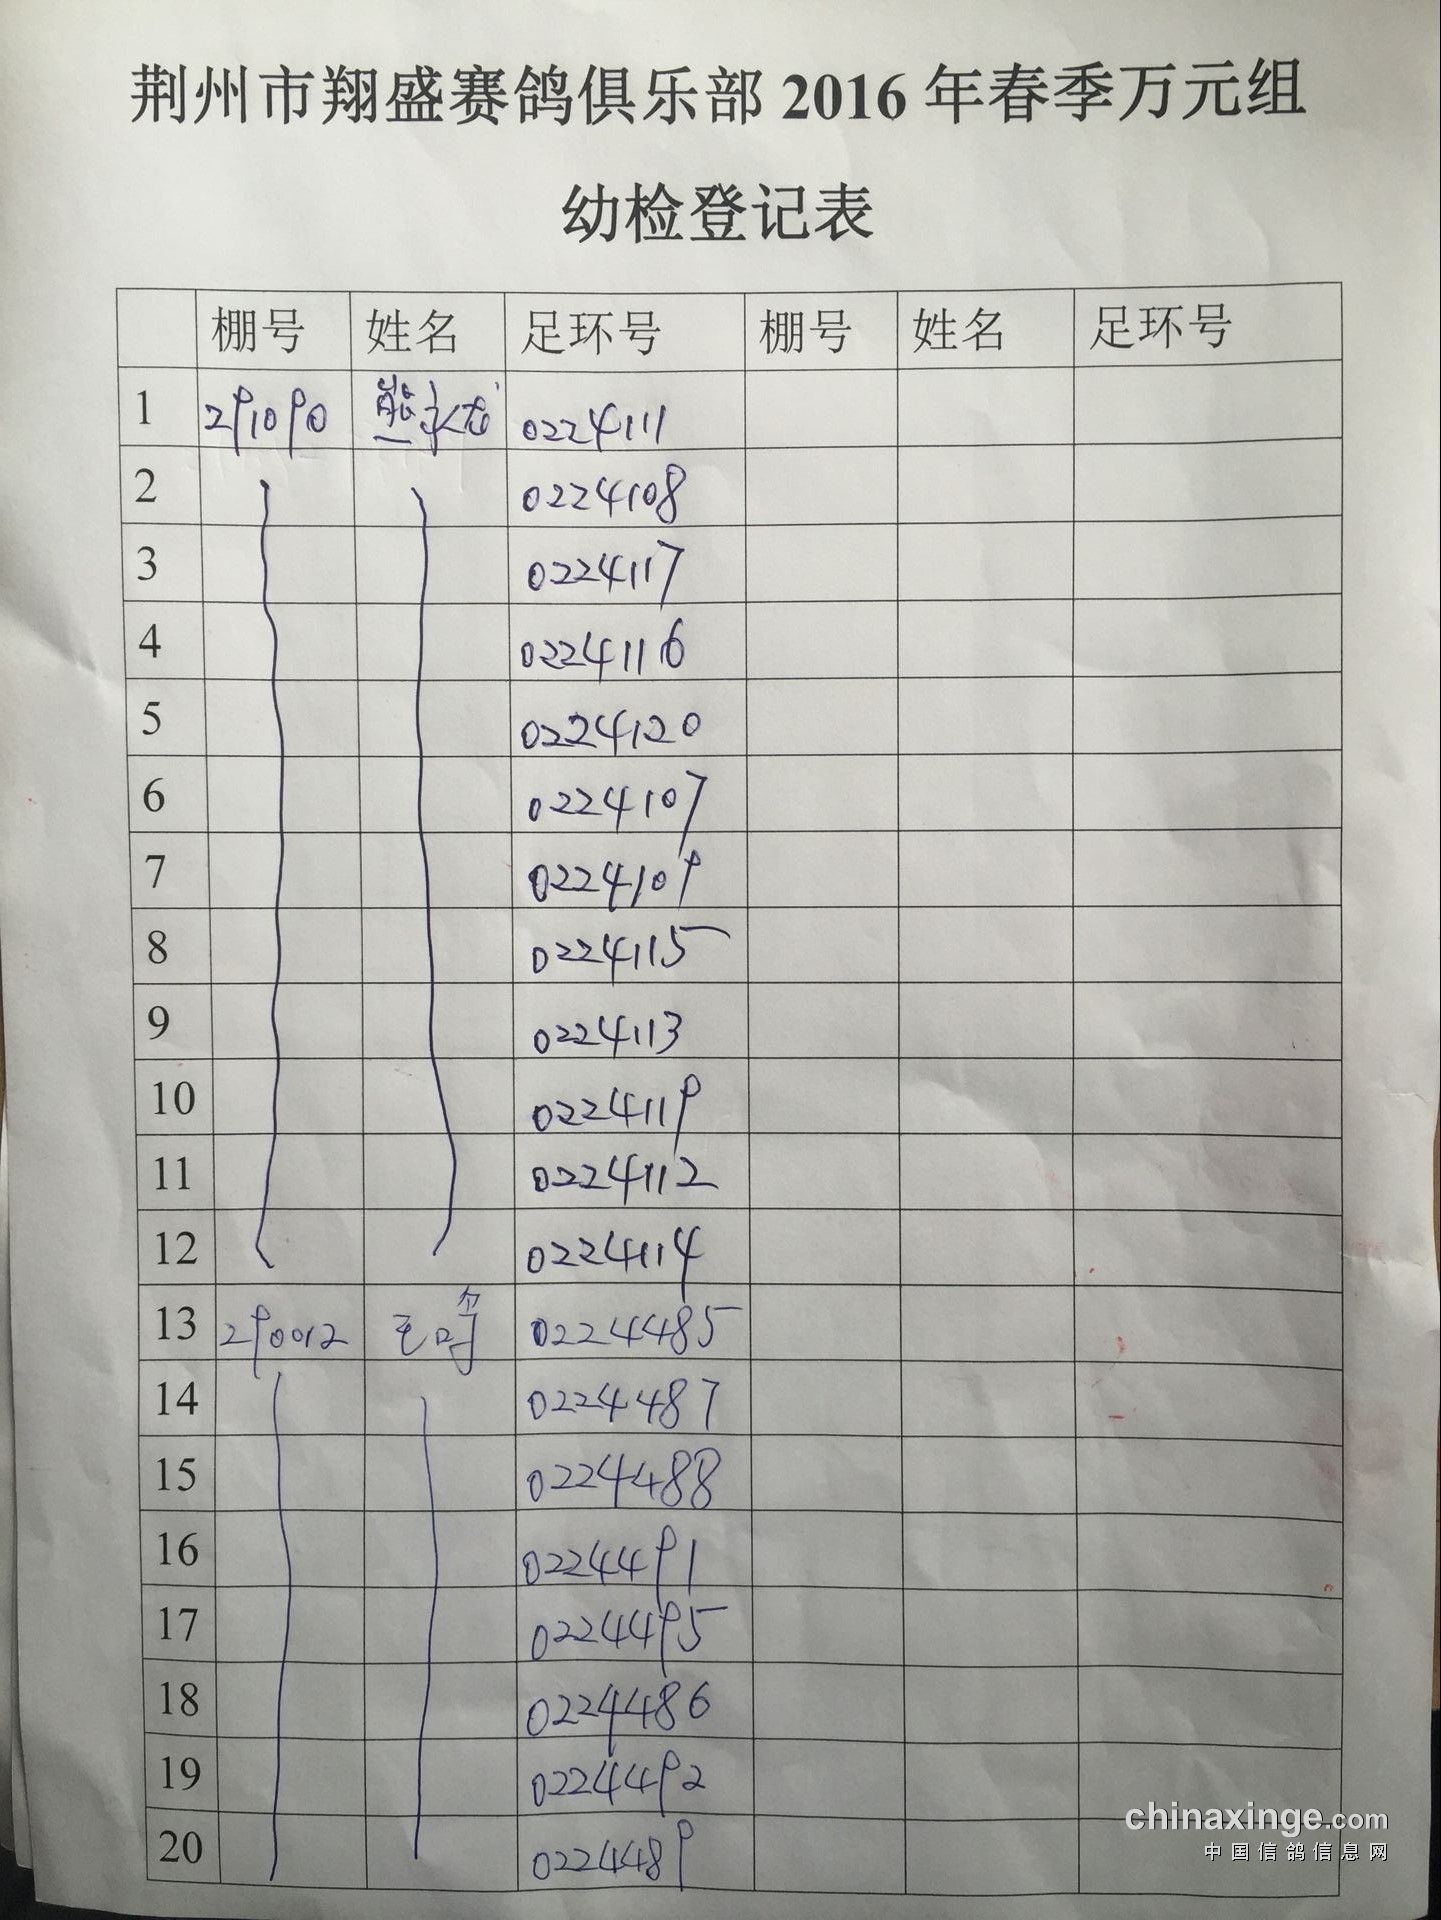 荆州市翔盛赛鸽俱乐部 2016 年春季万元组
幼检登记表
棚号 姓名 足环号 棚号 姓名 足环号
1 291090 熊永龙 0224111
2 0224108
3 0224117
4 0224116
5 0224120
6 0224107
7 0224109
8 0224115
9 0224113
10 0224119
11 0224112
12 0224114
13 290012 0224485
14 0224487
15 0224488
16 0224491
17 0224495
18 0224486
19 0224492
20 0224489
chinaxinge.com
中国信鸽信息网